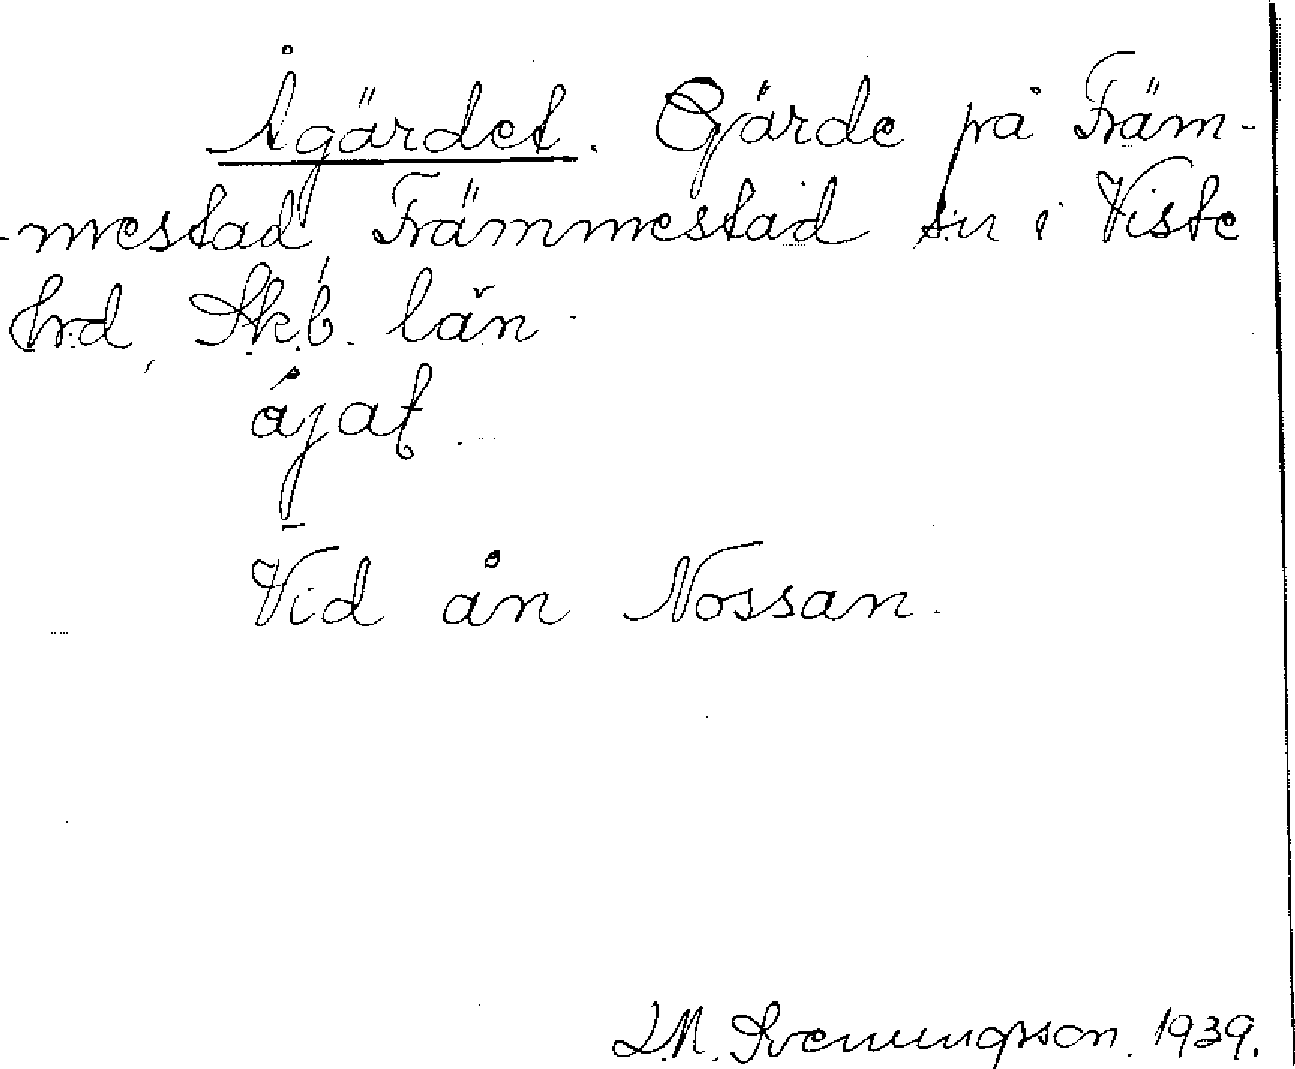 Ågärdet. Gärde på Främ-
-mestad, Främmestad sn i Viste
hrd, Skb. län.
ájat.
Vid ån Nossan.
L.M. Svenungsson. 1939.